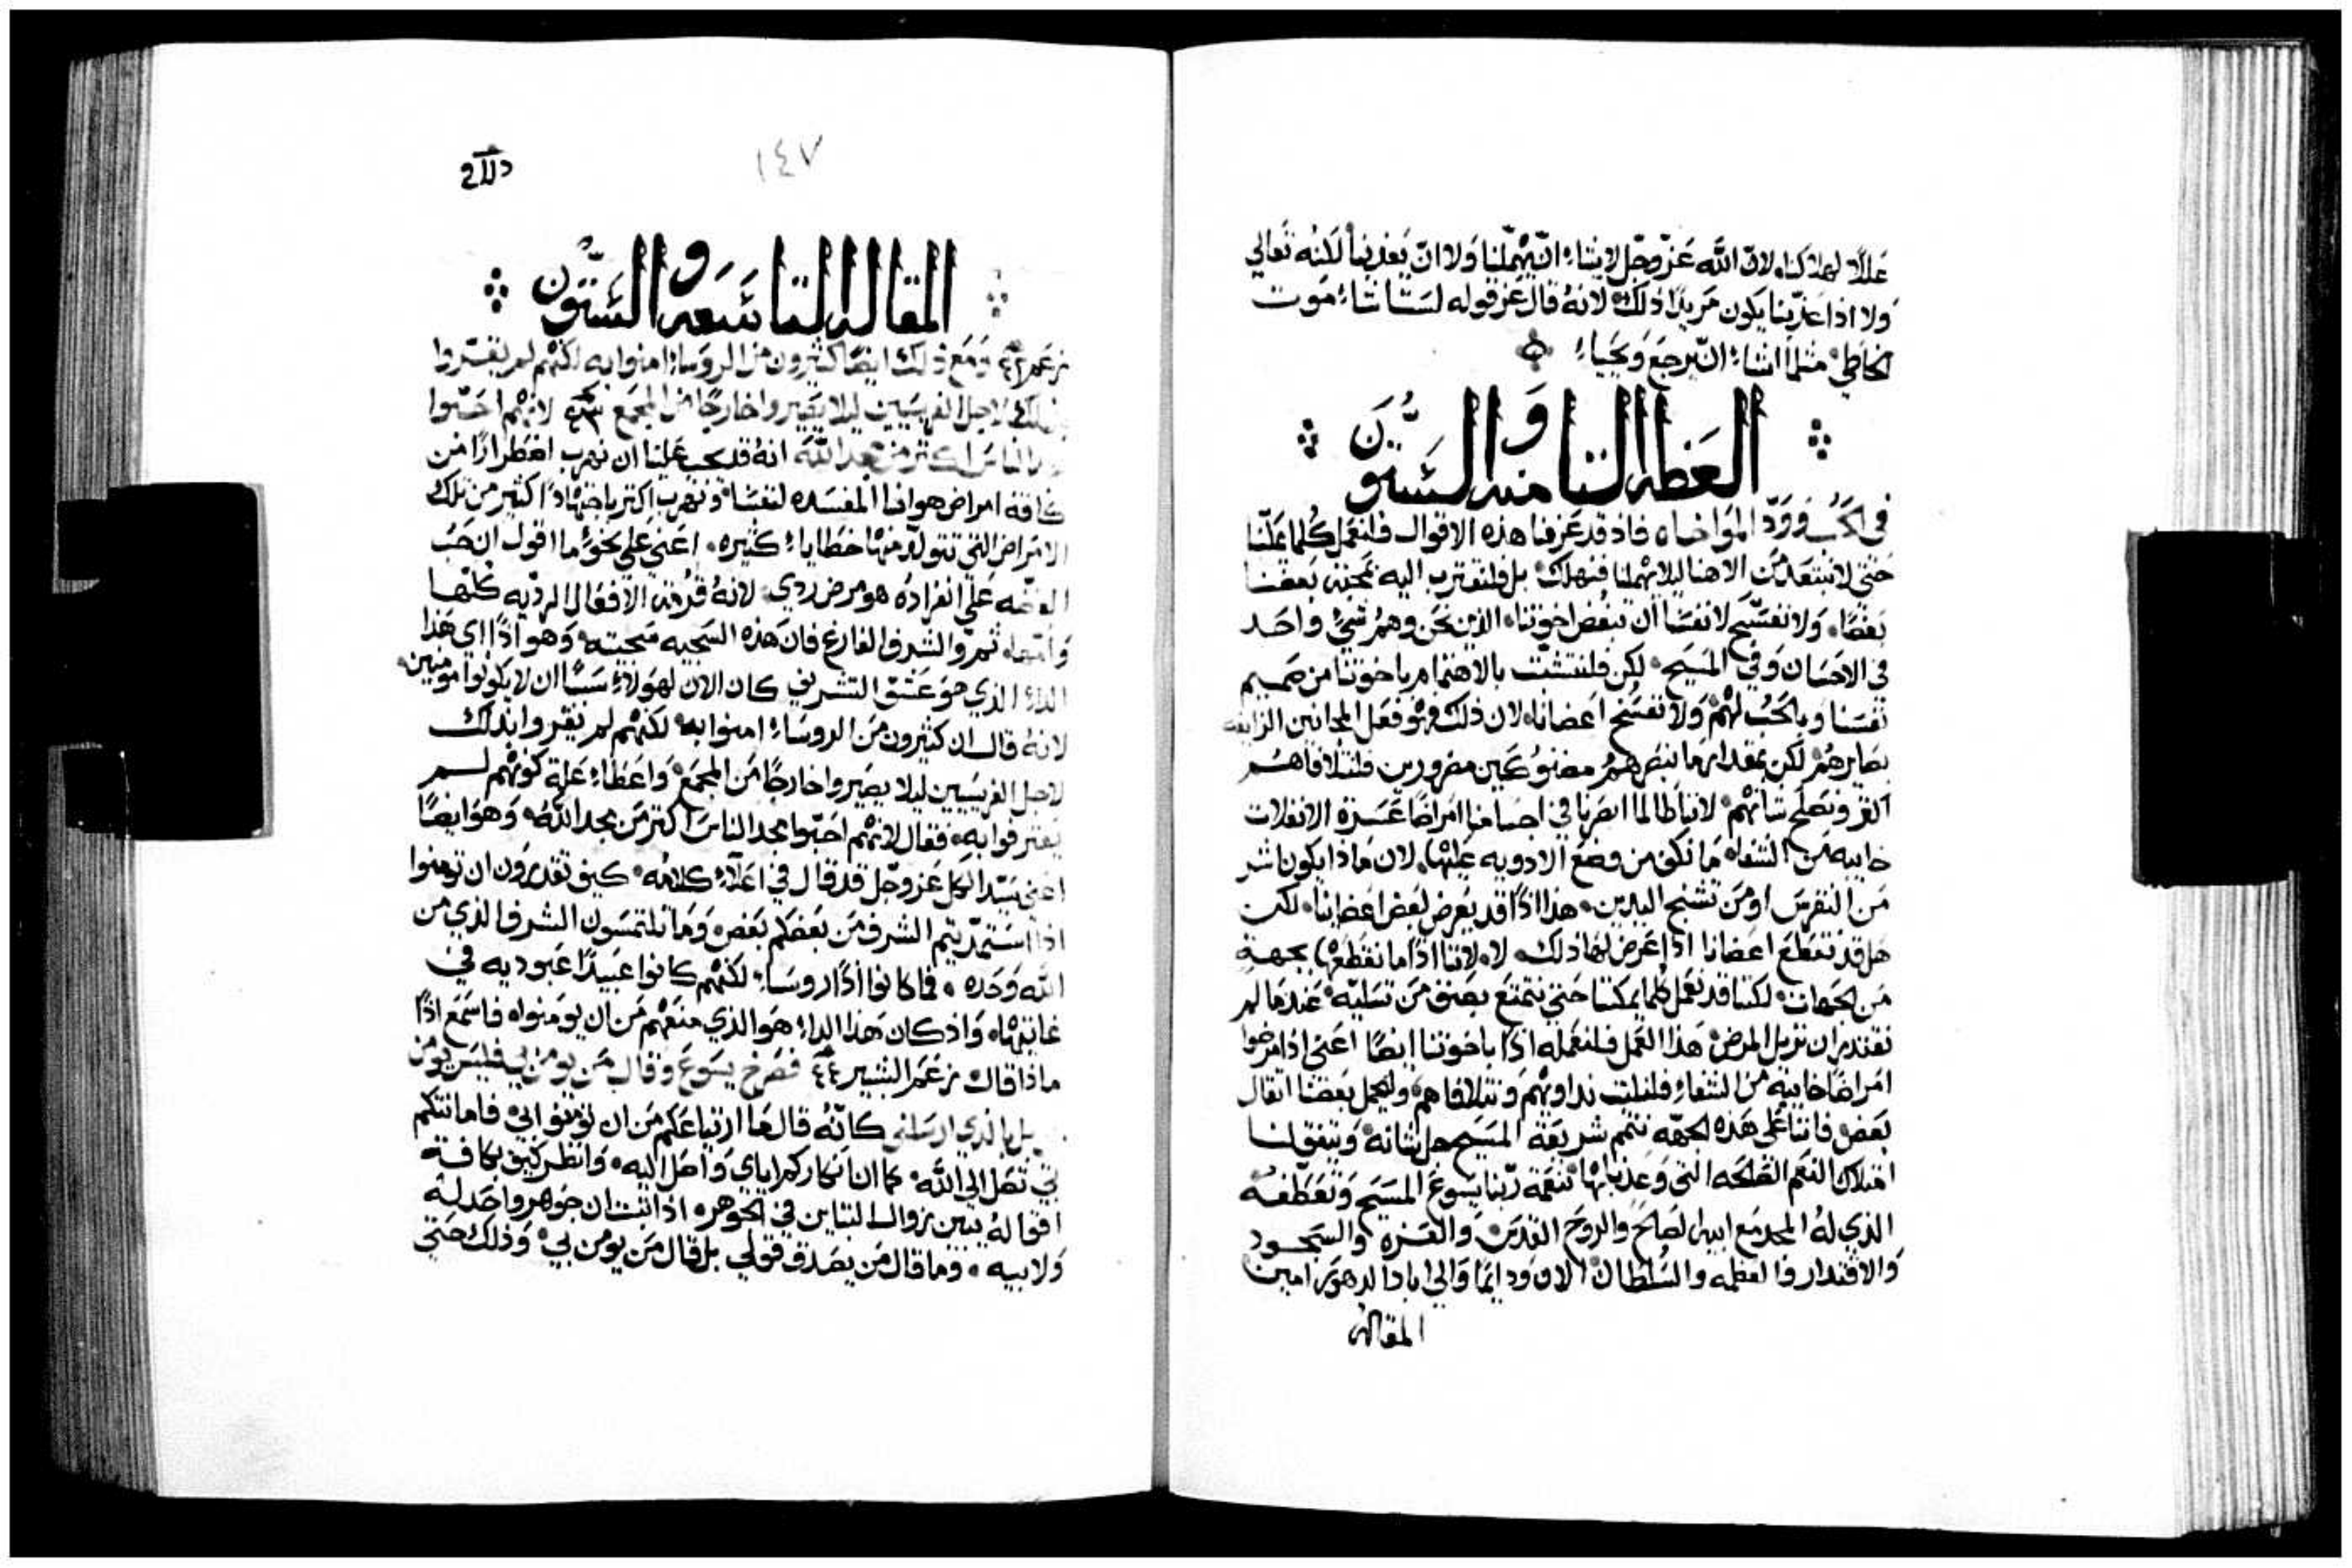 عللًا لهلاكنا، لان الله عز وجل لا يشاء ان يهملنا ولا ان يعذبنا لكنه تعالي
ولا اذا عذبنا يكون مريدًا ذلك لانه قال عز قوله لست اشاء موت
الخاطي مثلما اشاء ان يرجع ويحيا
العظه الثامنه والستون
في الحب وود المواخاه فاذ قد عرفنا هذه الاقوال فلنعمل كلما يمكننا
حتي لا نبتعد من الاهنا ليلا يهملنا فنهلك بل فلنقترب اليه بمحبة بعضنا
بعضًا، ولا نفسح لانفسنا ان نبغض اخوتنا، الذين نحن وهم شي واحد
في الاحسان وفي المسيح لكن فلنتشبت بالاهتمام باخوتنا من صميم
نفسنا وبالحب لهم ولا نفسخ اعضانا، لان ذلك هو فعل المجانين الزايغه
بصايرهم لكن بمقدار ما نبصرهم مضنوكين مضرورين فلنتلافاهم
اكثر ونصلح شانهم لاننا طالما ابصرنا في اجسامنا امراضًا عسرة الانفلات
خايبه من الشفاه ما نكف من وضع الادويه عليها، لان ماذا يكون اشر
من النقرس او من تشنج اليدين هذا اذًا قد يعرض لبعض اعضاينا، لكن
هل قد نقطع اعضانا اذا عرض لها ذلك لا، لاننا اذًا ما نقطعها بجهة
من الجهات لكننا قد نعمل كلما يمكننا حتي نتمتع بصنف من تسليه عندما لم
نقتدر ان نزيل المرض هذا العمل فلنعمله اذًا باخوتنا ايضًا اعني اذا مرضوا
امراضًا خايبه من الشفاء فلنلبث نداويهم ونتلافاهم وليحمل بعضنا اثقال
بعض فاننا علي هذه الجهه نتمم شريعة المسيح جل شانه ويتفق لنا
امتلاك النعم الصالحه التي وعدنا بها بنعمة ربنا يسوع المسيح وتعطفه
الذي له المجد مع ابيه الصالح والروح القدس والعزه والسجود
والاقتدار والعظمه والسلطان الان ودايمًا والي اباد الدهور امين
المقاله
١٤٧
المقاله التاسعه والستون
ومع ذلك ايضًا كثيرون من الروساء امنوا به لكنهم لم يقروا
لاجل الفريسيين ليلا يصيروا خارجًا من المجمع لانهم احبوا
الناس اكثر من مجد الله انه قد يجب علينا ان نهرب اضطرارًا من
كافة امراض هوانا المفسده لنفسنا ونهرب اكثر باجتهادًا كثير من تلك
الامراض التي تتولد منها خطاياء كثيره، اعني علي نحو ما اقول ان حب
الفضه علي انفراده هو مرض ردي لانه قدمة الافعال الرديه كلها
وامها، ثم والشرف الفارغ فان هذه السجيه سجيته وهو اذًا اي هذا
الداء الذي هو عشق التشريف كان الان لهولاء سببًا ان لا يكونوا مومنين
لانه قال ان كثيرون من الروساء امنوا به لكنهم لم يقروا بذلك
لاجل الفريسيين ليلا يصيروا خارجًا من المجمع واعطاء علة كونهم لم
يعترفوا به فقال لانهم احبوا مجد الناس اكثر من مجد الله وهو ايضًا
اعني سيد الكل عز وجل قد قال في اعلاء كلامه كيف تقدرون ان تومنوا
اذا استمديتم الشرف من بعضكم بعض وما تلتمسون الشرف الذي من
الله وحده، فما كانوا اذًا روساء لكنهم كانوا عبيدًا عبوديه في
غايتها، واذ كان هذا الداء هو الذي منعهم من ان يومنوا، فاسمع اذًا
ماذا قال زعم البشير ٤٤ فصرخ يسوع وقال من يومن بي فليس يومن
بي بل بالذي ارسلني كانه قال ما ارتياعكم من ان تومنوا بي فامانتكم
بي تصل الي الله كما ان انكاركم اياي واصل اليه وانظر كيف بكافة
اقواله يبين زوال التباين في الجوهر، اذ اثبت ان جوهر واحد له
ولابيه، وما قال من يصدق قولي بل قال من يومن بي وذلك حتي